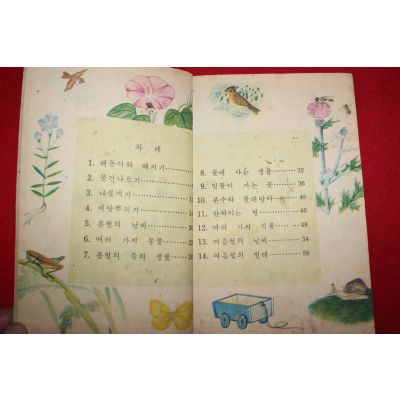 차 례
1. 해돋이와 해지기
2. 물건나르기
3. 나물캐기
4. 씨앗뿌리기
5. 봄철의 날씨
6. 여러 가지 동물
7. 봄철의 들의 생물
8. 물에 사는 생물 32
9. 빗물이 가는 곳 36
10. 분수와 물레방아
11. 반짝이는 별
12. 여러 가지 식물 48
13. 여름철의 날씨 54
14. 여름철의 벌레 58